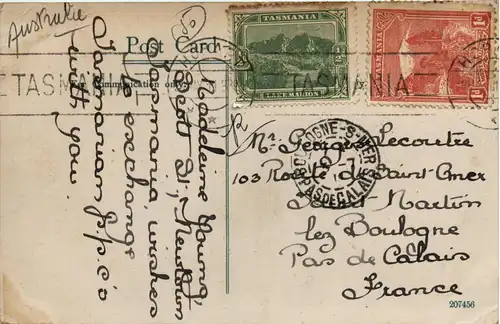 Australie
Post Card
TASMANIA
½
LAKE MARION
TASMANIA
TASMANIA
TASMA
Communication only
Madeleine Young,
Scott St., Newtown
Tasmania, wishes
to exchange
Tasmanian p.p.c's
with you.
BOULOGNE-S-MER
PAS DE CALAIS
Mr. Georges Lecoutre
103 Route de Saint Omer
Saint Martin
lez Boulogne
Pas de Calais
France
207456